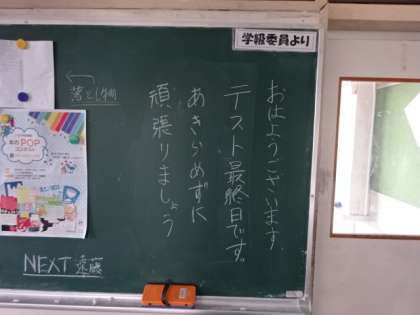 学級委員より
おはようございます。
テスト最終日です。
あきらめずに
頑張りましょう
落とし物
POP
コンテスト
NEXT 遠藤